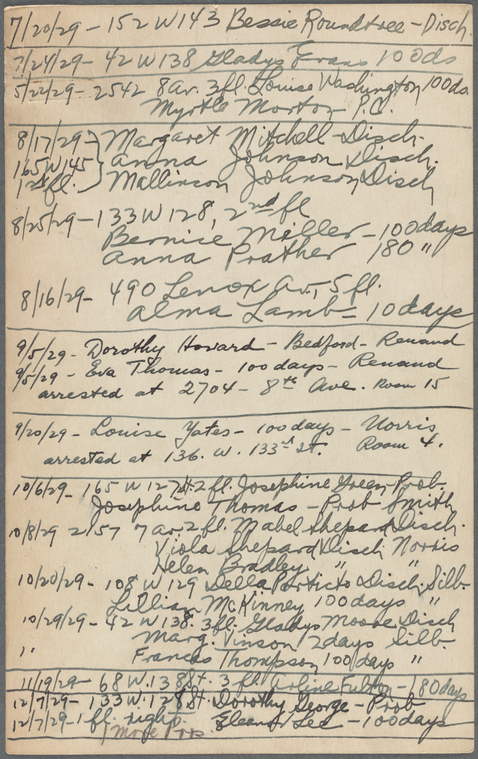 7/20/29 - 152 W 143 Bessie Roundtree - Disch.
7/24/29 - 42 W 138 Gladys Evans 100ds
5/22/29 - 2542 8 av. 3 fl. Louise Washington 100ds.
Myrtle Morton P.C.
8/17/29 } Margaret Mitchell - Disch.
165 W 145 Anna Johnson Disch.
1st fl. Mallinson Johnson Disch
8/25/29 - 133 W 128, 2nd fl
Bernice Miller - 100 days
Anna Prather 180 "
8/16/29 - 490 Lenox Av, 5 fl.
Alma Lamb - 10 days
9/5/29 - Dorothy Howard - Bedford - Renaud
9/5/29 - Eva Thomas - 100 days - Renaud
arrested at 2704 - 8th Ave. Room 15
9/20/29 - Louise Yates - 100 days - Norris
arrested at 136. W. 133rd St. Room 4.
10/6/29 - 165 W 127 St. 2 fl. Josephine Green - Prob.
Josephine Thomas - Prob Smith
10/8/29 2157 7 av. 2 fl. Mabel Shepard Disch.
Viola Shepard Disch Norris
Helen Bradley " "
10/20/29 - 108 W 129 Della Disch Silb.
Lillian McKinney 100 days "
10/29/29 - 42 W 138. 3 fl. Gladys Moore Disch
Marg. Vinson 2 days Silb.
" Frances Thompson 100 days "
11/19/29 - 68 W. 138 St. 3 fl Arline Fulton - 180 days
12/7/29 - 133 W. 128 St. Dorothy George - Prob
12/7/29 - 1 fl. right. Eleanor Lee - 100 days
1 more Pros.